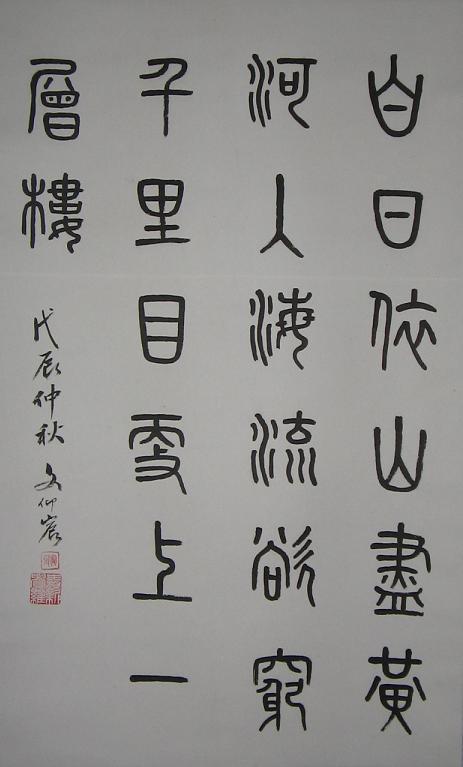 白日依山盡黃
河入海流欲窮
千里目更上一
層樓
戊辰仲秋 文仰宸